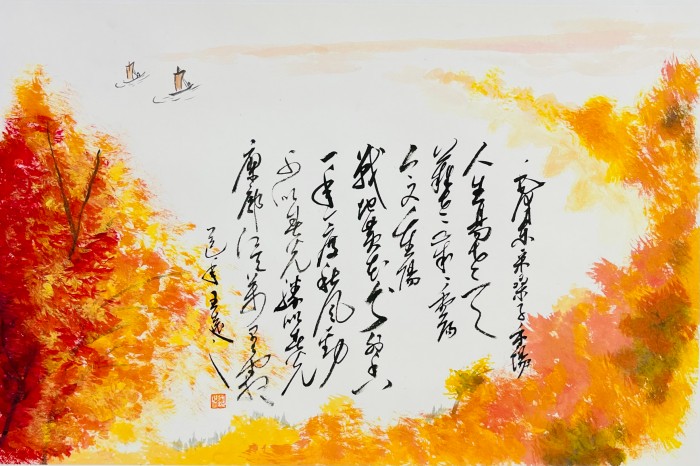 毛泽东采桑子重阳
人生易老天
难老岁岁重阳
今又重阳
战地黄花分外香
一年一度秋风劲
不似春光胜似春光
廖廓江天万里霜